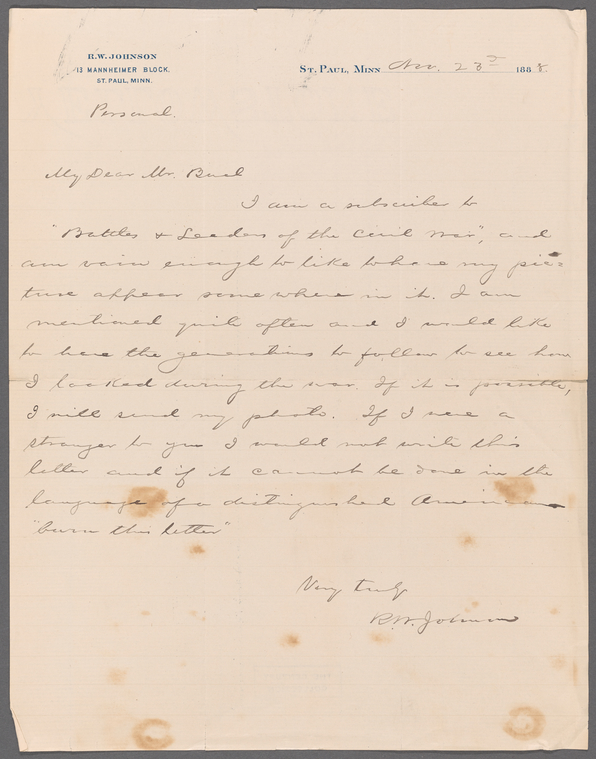 R.W. JOHNSON
13 MANNHEIMER BLOCK.
ST. PAUL, MINN.
ST. PAUL, MINN Nov. 23rd 1888.
Personal.
My Dear Mr. Buel
I am a subscriber to
"Battles & Leaders of the Civil War", and
am vain enough to like to have my pic-
ture appear some where in it. I am
mentioned quite often and I would like
to have the generations to follow to see how
I looked during the war. If it is possible,
I will send my photo. If I were a
stranger to you I would not write this
letter and if it cannot be done in the
language of a distinguished American
"burn this letter"
Very truly
R.W. Johnson